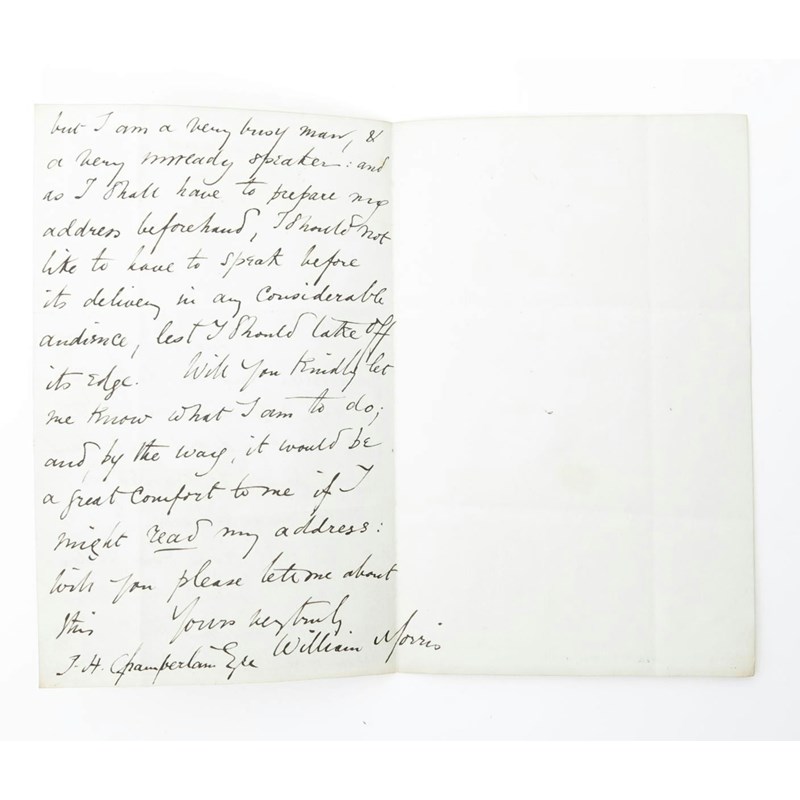 but I am a very busy man, &
a very unready speaker: and
as I shall have to prepare my
address beforehand, I should not
like to have to speak before
its delivery in any considerable
audience, lest I should take off
its edge. Will you kindly let
me know what I am to do;
and, by the way, it would be
a great comfort to me if I
might read my address:
Will you please let me about
this Yours very truly
J. H. Chamberlain Esqre William Morris